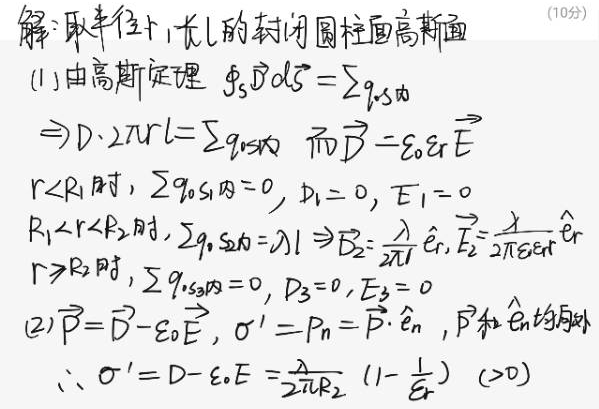 (10分)
解:取半径r,长l的封闭圆柱面高斯面
(1)由高斯定理 ∮ₛD⃗dS⃗=∑q₀,S内
⇒D·2πrl=∑q₀S内 而D⃗=ε₀εrE⃗
r<R₁时,∑q₀S₁内=0, D₁=0, E₁=0
R₁<r<R₂时,∑q₀,S₂内=λl⇒D⃗₂=λ/2πr êr, E⃗₂=λ/2πε₀εrr êr
r≥R₂时,∑q₀,S₃内=0, D₃=0, E₃=0
(2)P⃗=D⃗-ε₀E⃗, σ'=Pn=P⃗·ên, P⃗和ên均向外
∴σ'=D-ε₀E=λ/2πR₂ (1-1/εr) (>0)